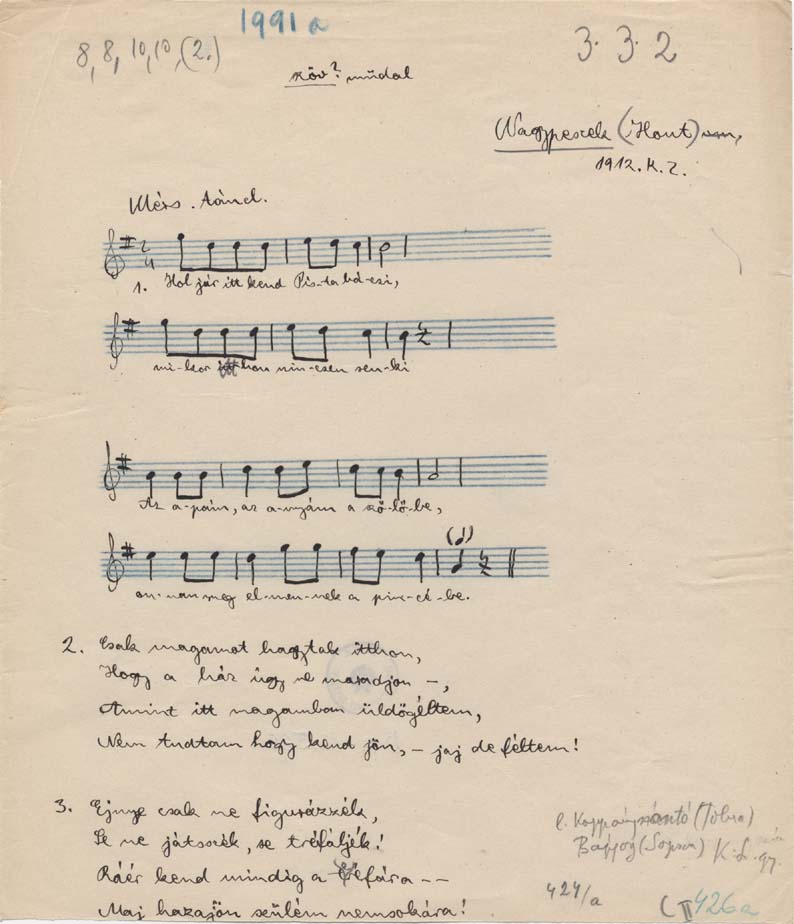 1991a
8, 8, 10, 10, (2.)
3. 3. 2
szöv? müdal
(Hont)
1912. K. Z.
Mérs. tánd.
2
4
1. Hol jár itt kend Pis-ta bá-csi,
mi-kor itthon nin-csen sen-ki
Az a-pám, az a-nyám a sző-lő-be,
on-nan meg el-men-nek a pin-cé-be.
2. Csak magamat hagytak itthon,
Hogy a ház úgy ne maradjon –,
Amint itt magamban üldögéltem,
Nem tudtam hogy kend jön, – jaj de féltem!
3. Ejnye csak ne figurázzék,
Se ne játsszék, se tréfáljék!
Ráér kend mindig a tréfára --
Maj hazajön szülém nemsokára!
l. Koppányszántó (Tolna)
(Sopron) K. S. gy.
424/a
C II 426a